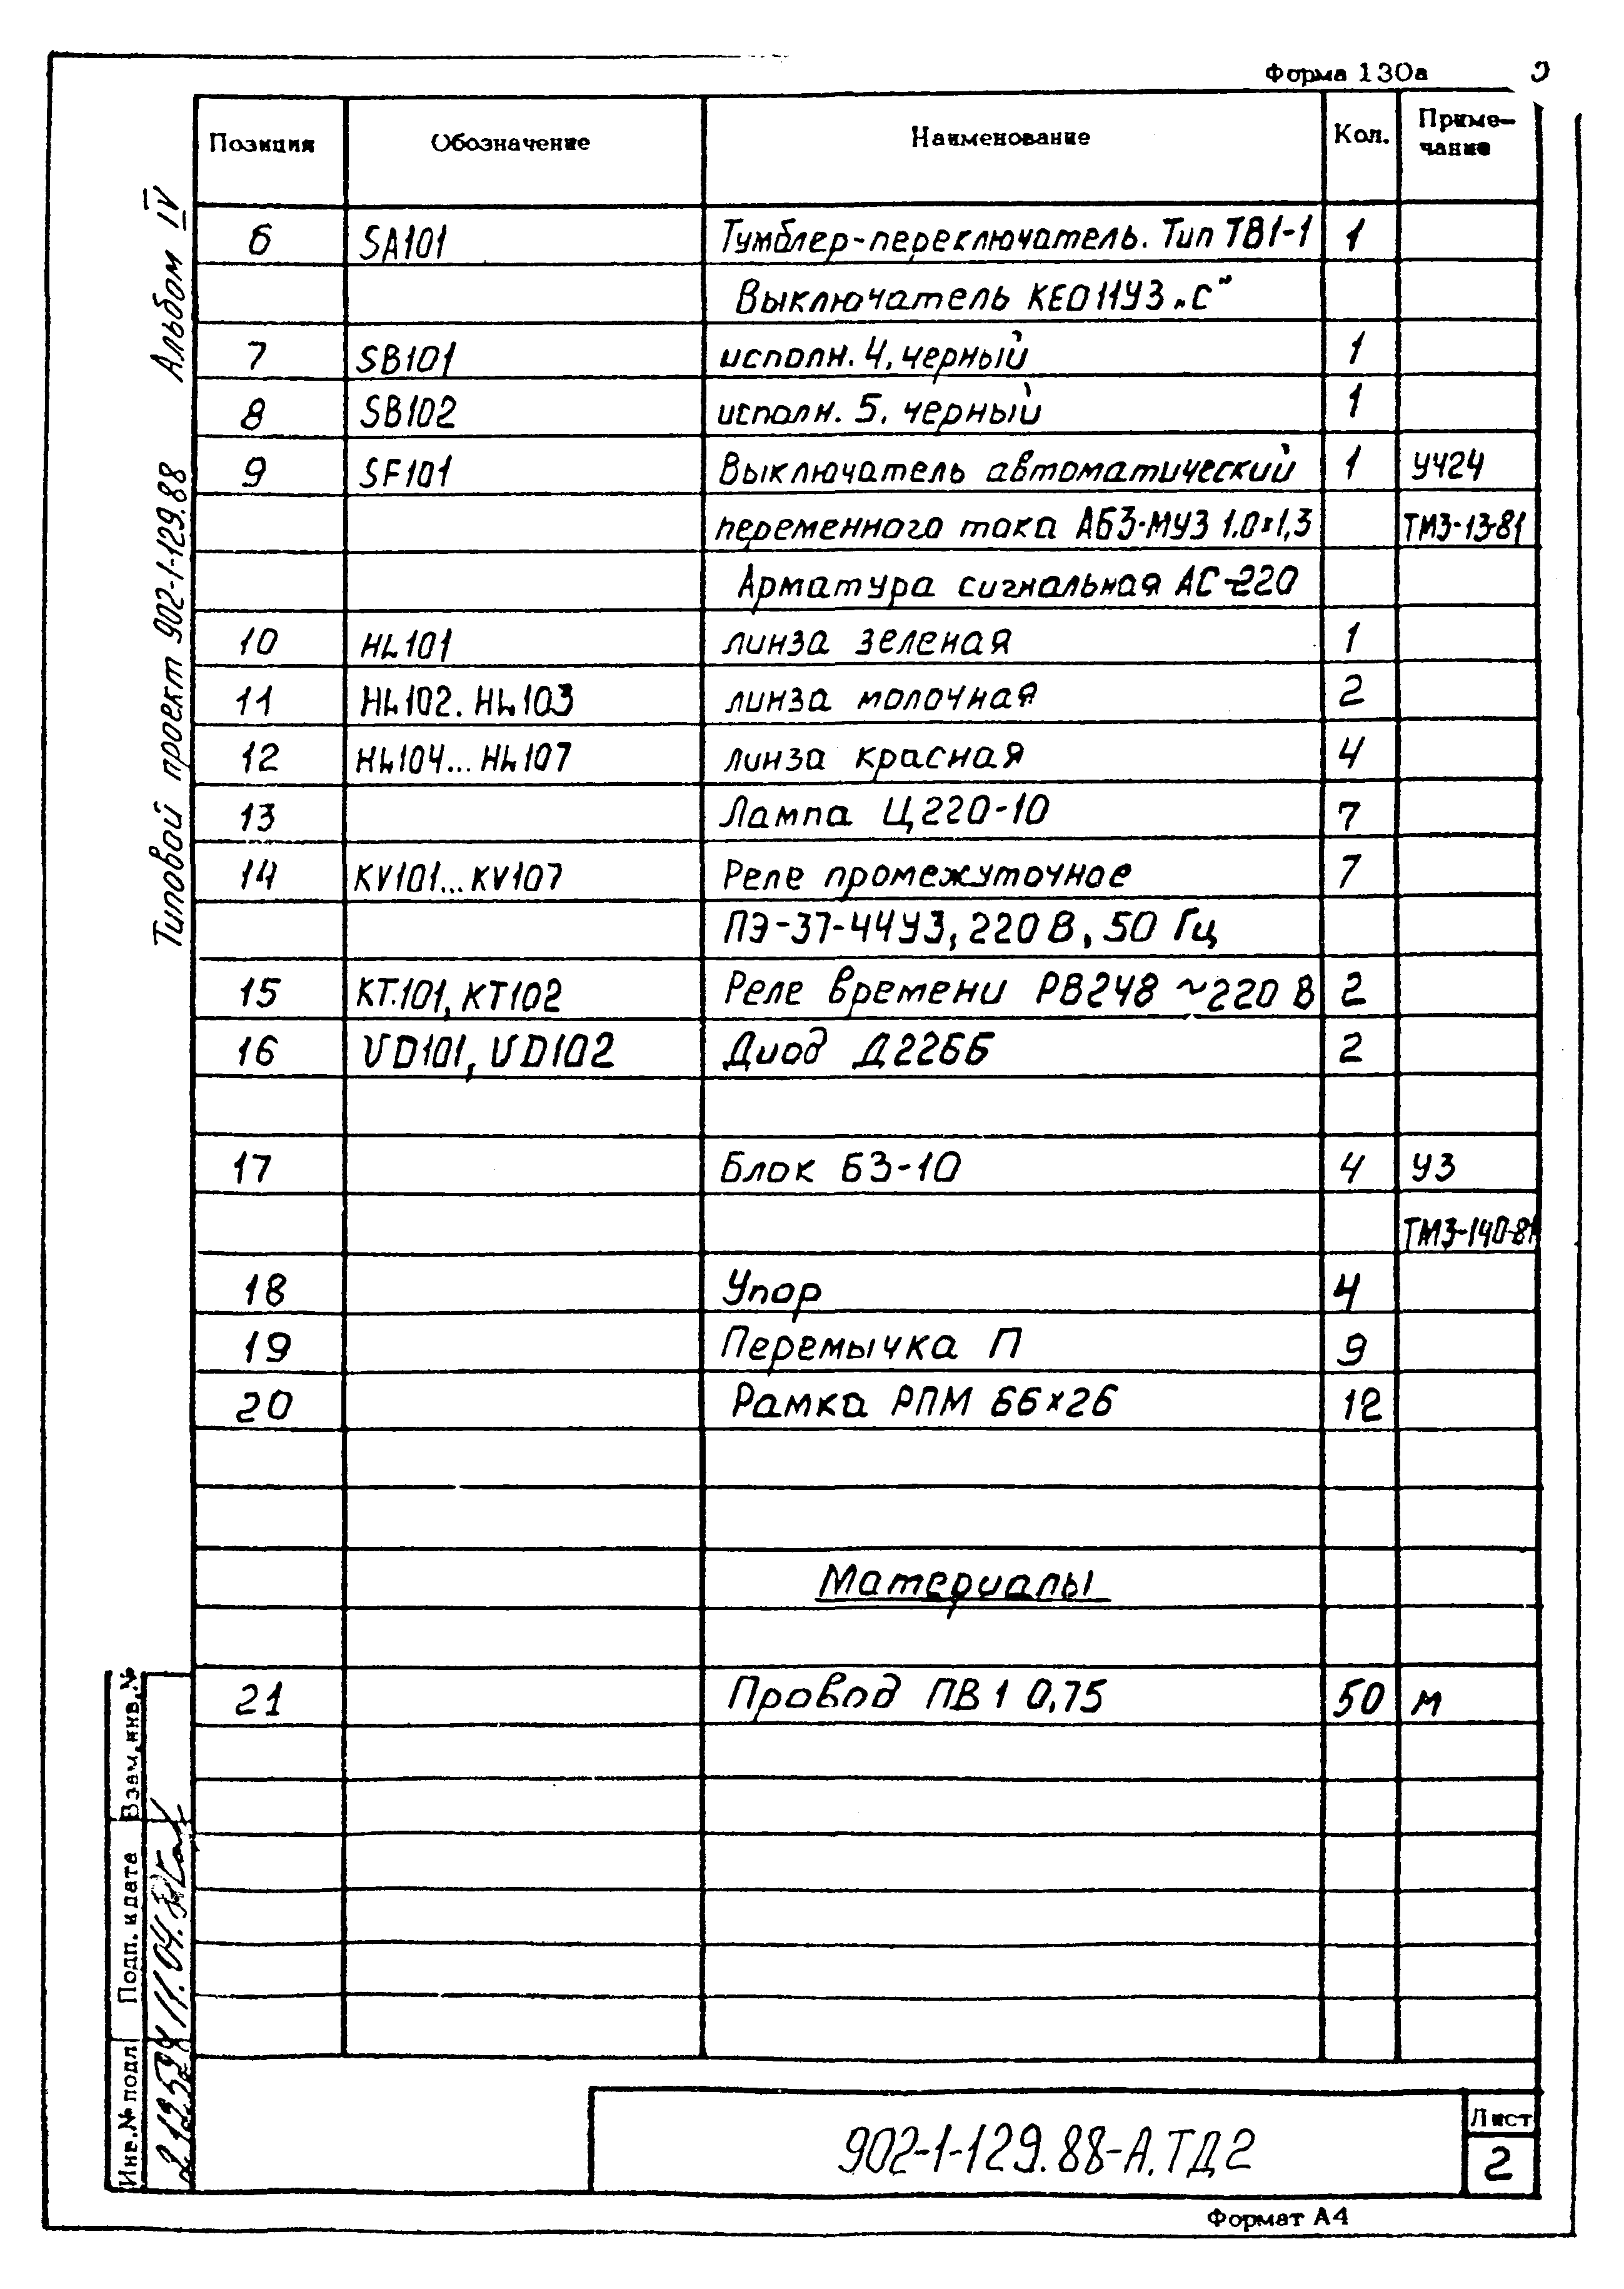 Форма 130а
Альбом IV
Типовой проект 902-1-129.88
Позиция Обозначение Наименование Кол. Приме-
чание
6 SA101 Тумблер-переключатель. Тип ТВ1-1 1
Выключатель КЕ011У3 „С"
7 SB101 исполн. 4, черный 1
8 SB102 исполн. 5, черный 1
9 SF101 Выключатель автоматический 1 УЧ24
переменного тока А63-МУ3 1.0х1,3 ТМ3-13-81
Арматура сигнальная АС-220
10 HL101 линза зеленая 1
11 HL102. HL103 линза молочная 2
12 HL104...HL107 линза красная 4
13 Лампа Ц220-10 7
14 KV101...KV107 Реле промежуточное 7
ПЭ-37-44У3, 220 В, 50 Гц
15 KT.101, KT102 Реле времени РВ248 ~220 В 2
16 VD101, VD102 Диод Д226Б 2
17 Блок БЗ-10 4 У3
ТМ3-140-81
18 Упор 4
19 Перемычка П 9
20 Рамка РПМ 66х26 12
Материалы
21 Провод ПВ1 0,75 50 м
Взам.инв.№
Подп. и дата
Инв.№ подл
902-1-129.88-А.ТД2
Лист
2
Формат А4